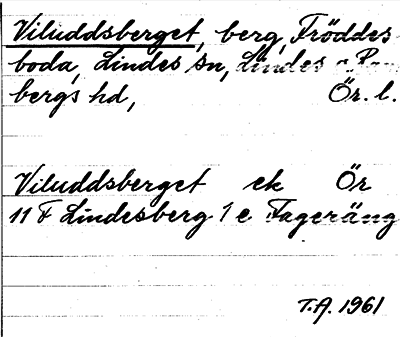 Viluddsberget, berg, Fröddes
boda, Lindes sn, Lindes o. Ram
bergs hd, Ör. l.
Viluddsberget ek Ör
11 F Lindesberg 1 e Fageräng
T.A. 1961